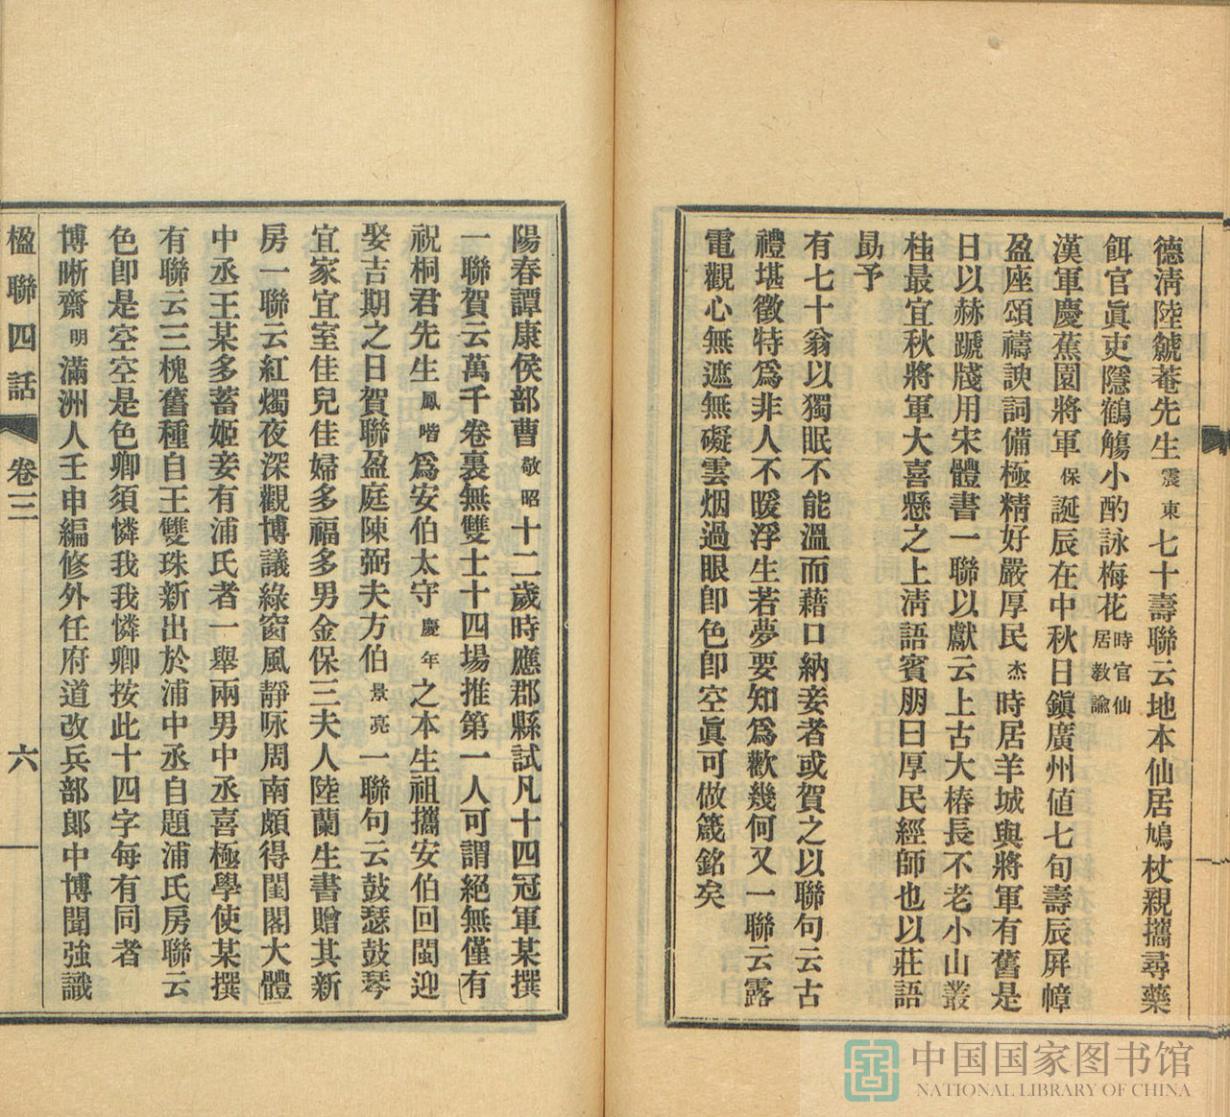 德清陸虩菴先生震東七十壽聯云地本仙居鳩杖親攜尋藥
餌官眞吏隱鶴觴小酌詠梅花時官仙居教諭
漢軍慶蕉園將軍保誕辰在中秋日鎭廣州値七旬壽辰屏幛
盈座頌禱諛詞備極精好嚴厚民杰時居羊城與將軍有舊是
日以赫蹏牋用宋體書一聯以獻云上古大椿長不老小山叢
桂最宜秋將軍大喜懸之上淸語賓朋曰厚民經師也以莊語
勗予
有七十翁以獨眠不能溫而藉口納妾者或賀之以聯句云古
禮堪徵特爲非人不暖浮生若夢要知爲歡幾何又一聯云露
電觀心無遮無礙雲烟過眼卽色卽空眞可做箴銘矣
陽春譚康侯部曹敬昭十二歲時應郡縣試凡十四冠軍某撰
一聯賀云萬千卷裏無雙士十四場推第一人可謂絕無僅有
祝桐君先生鳳喈爲安伯太守慶年之本生祖攜安伯回閩迎
娶吉期之日賀聯盈庭陳弼夫方伯景亮一聯句云鼓瑟鼓琴
宜家宜室佳兒佳婦多福多男金保三夫人陸蘭生書贈其新
房一聯云紅燭夜深觀博議綠窗風靜咏周南頗得閨閣大體
中丞王某多蓄姬妾有浦氏者一舉兩男中丞喜極學使某撰
有聯云三槐舊種自王雙珠新出於浦中丞自題浦氏房聯云
色卽是空空是色卿須憐我我憐卿按此十四字每有同者
博晰齋明滿洲人壬申編修外任府道改兵部郎中博聞強識
楹聯四話
卷三
六
中国国家图书馆
NATIONAL LIBRARY OF CHINA